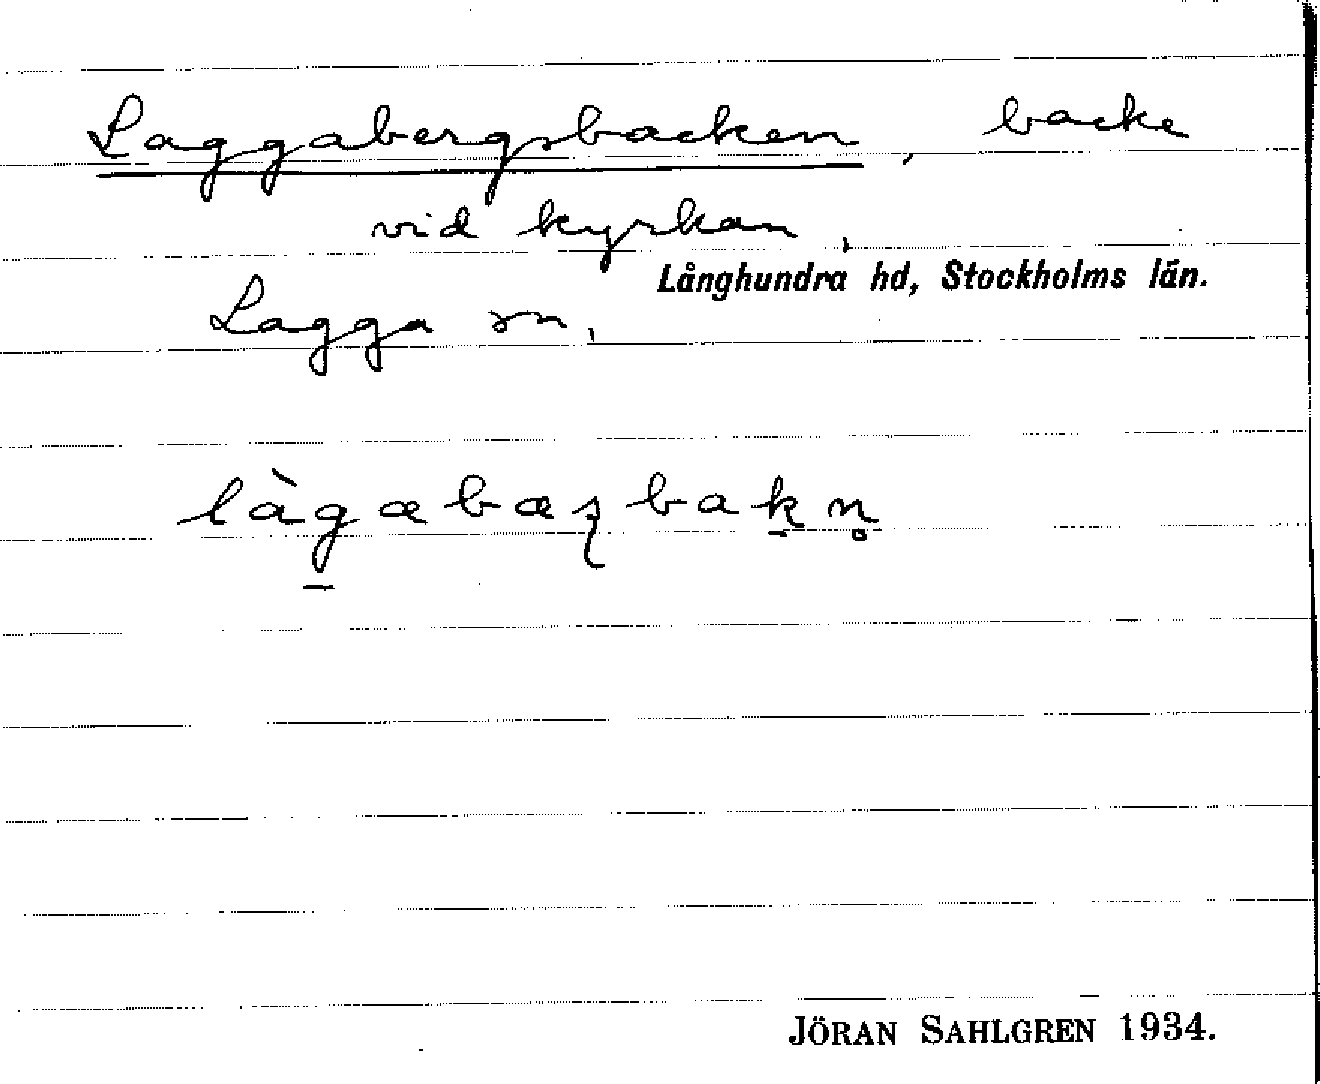 Laggabergsbacken, backe
vid kyrkan,
Långhundra hd, Stockholms län.
Lagga sn,
làg̠abæʂbak̠n̥
JÖRAN SAHLGREN 1934.